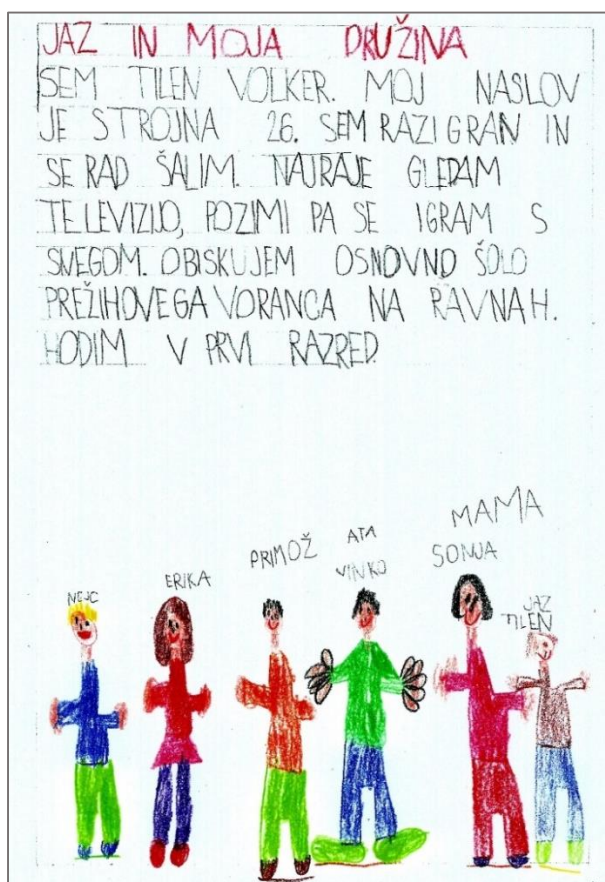 JAZ IN MOJA DRUŽINA
SEM TILEN VOLKER. MOJ NASLOV
JE STROJNA 26. SEM RAZIGRAN IN
SE RAD ŠALIM. NAJRAJE GLEDAM
TELEVIZIJO, POZIMI PA SE IGRAM S
SNEGOM. OBISKUJEM OSNOVNO ŠOLO
PREŽIHOVEGA VORANCA NA RAVNAH.
HODIM V PRVI RAZRED.
MAMA
SONJA
ATA
VINKO
PRIMOŽ
ERIKA
NEJC
JAZ
TILEN